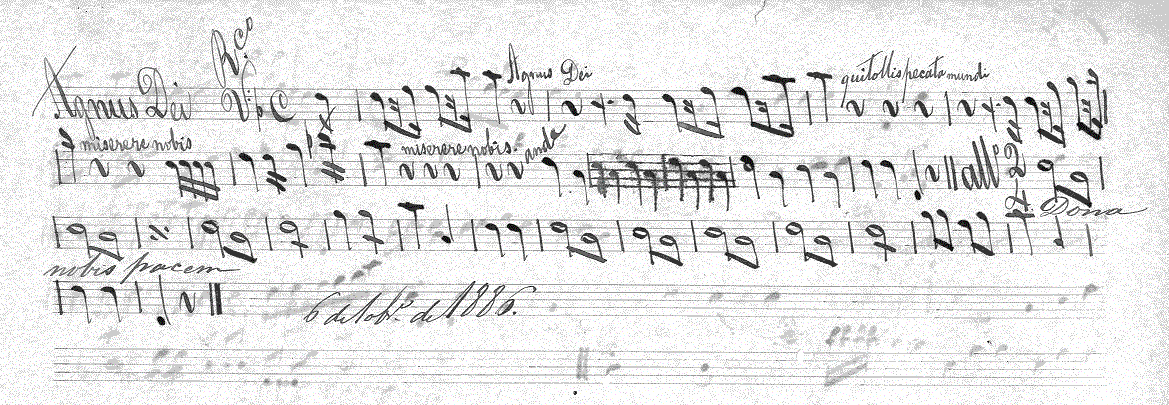 Agnus Dei Rco C Agnus Dei quitollis pecata mundi
miserere nobis miserere nobis. andte allo Dona
nobis pacem
6 de de 1886.